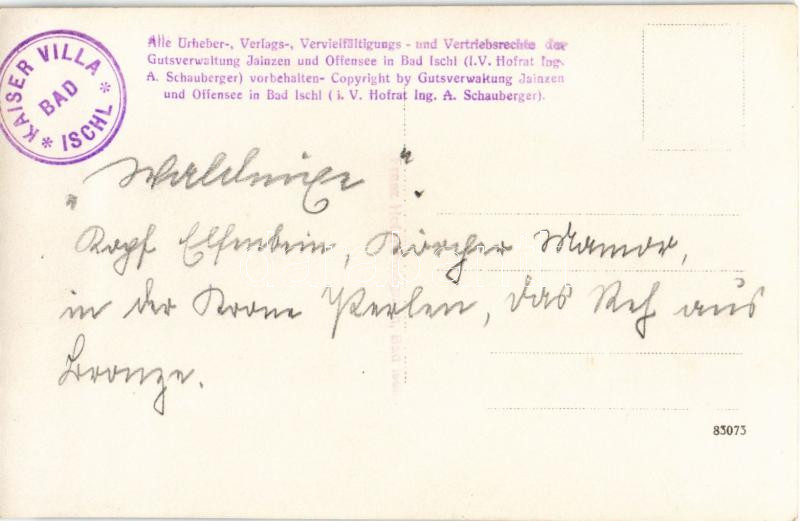 KAISER VILLA
BAD
* ISCHL *
Alle Urheber-, Verlags-, Vervielfältigungs - und Vertriebsrechte der
Gutsverwaltung Jainzen und Offensee in Bad Ischl (I.V. Hofrat Ing.
A. Schauberger) vorbehalten- Copyright by Gutsverwaltung Jainzen
und Offensee in Bad Ischl ( i. V. Hofrat Ing. A. Schauberger).
"Waldnixe".
Kopf Elfenbein, Körper Mamor,
in der Krone Perlen, das Reh aus
Bronze.
83073